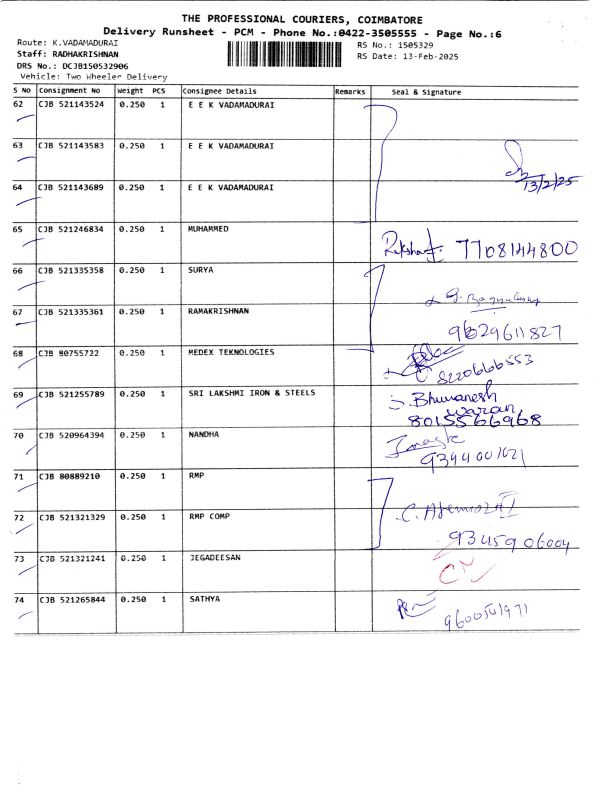 THE PROFESSIONAL COURIERS, COIMBATORE
Delivery Runsheet - PCM - Phone No.:0422-3505555 - Page No.:6
Route: K.VADAMADURAI
RS No.: 1505329
Staff: RADHAKRISHNAN
RS Date: 13-Feb-2025
DRS No.: DCJB150532906
Vehicle: Two Wheeler Delivery
S No Consignment No Weight PCS Consignee Details Remarks Seal & Signature
62 CJB 521143524 0.250 1 E E K VADAMADURAI
63 CJB 521143583 0.250 1 E E K VADAMADURAI
64 CJB 521143689 0.250 1 E E K VADAMADURAI
13/2/25
65 CJB 521246834 0.250 1 MUHAMMED
7708144800
66 CJB 521335358 0.250 1 SURYA
67 CJB 521335361 0.250 1 RAMAKRISHNAN
9629611827
68 CJB 80755722 0.250 1 MEDEX TEKNOLOGIES
8220666553
69 CJB 521255789 0.250 1 SRI LAKSHMI IRON & STEELS
Bhuvanesh
waran
8015566968
70 CJB 520964394 0.250 1 NANDHA
71 CJB 80889210 0.250 1 RMP
72 CJB 521321329 0.250 1 RMP COMP
9345906004
73 CJB 521321241 0.250 1 JEGADEESAN
74 CJB 521265844 0.250 1 SATHYA